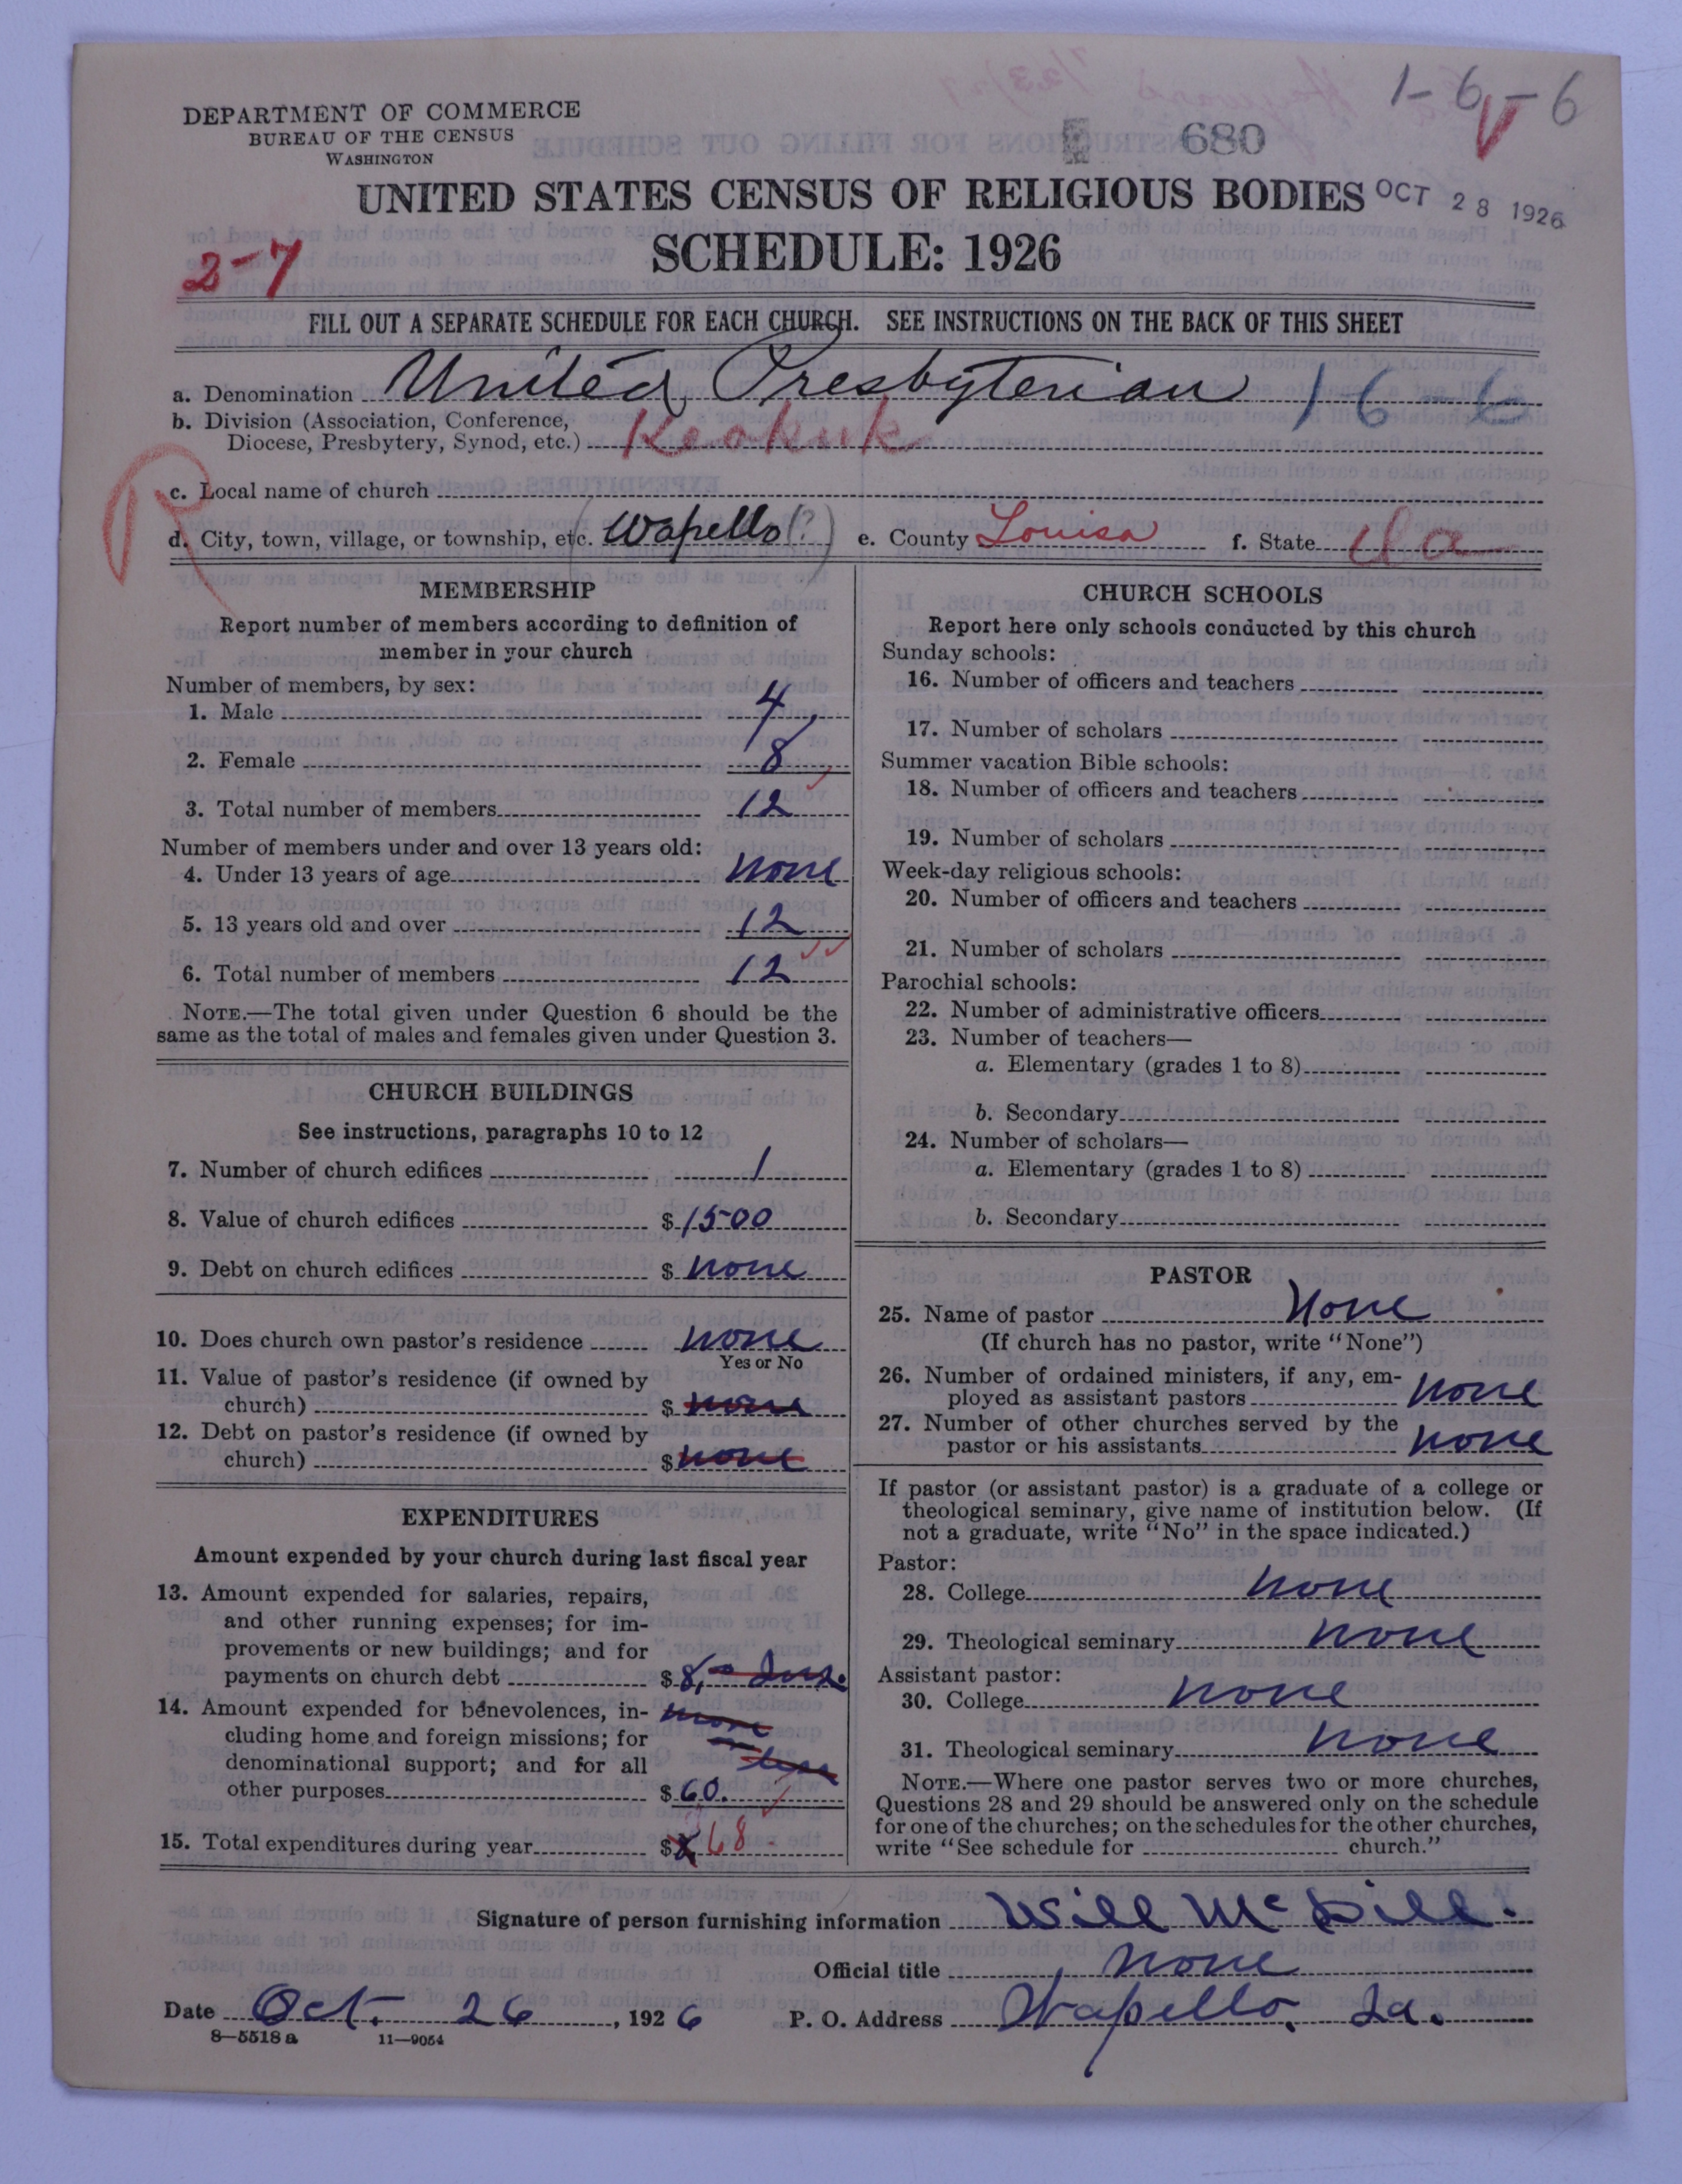 1-6-6
V
DEPARTMENT OF COMMERCE
BUREAU OF THE CENSUS
WASHINGTON
680
UNITED STATES CENSUS OF RELIGIOUS BODIES
OCT 28 1926
SCHEDULE: 1926
2-7
FILL OUT A SEPARATE SCHEDULE FOR EACH CHURCH. SEE INSTRUCTIONS ON THE BACK OF THIS SHEET
a. Denomination United Presbyterian 16-6
b. Division (Association, Conference,
Diocese, Presbytery, Synod, etc.) Keokuk
R
c. Local name of church
d. City, town, village, or township, etc. (Wapello(?) e. County Louisa f. State Ia
MEMBERSHIP
Report number of members according to definition of
member in your church
Number of members, by sex:
1. Male 4
2. Female 8
3. Total number of members 12
Number of members under and over 13 years old:
4. Under 13 years of age none
5. 13 years old and over 12
6. Total number of members 12
NOTE.—The total given under Question 6 should be the
same as the total of males and females given under Question 3.
CHURCH BUILDINGS
See instructions, paragraphs 10 to 12
7. Number of church edifices 1
8. Value of church edifices $1500
9. Debt on church edifices $ none
10. Does church own pastor's residence none
Yes or No
11. Value of pastor's residence (if owned by
church) $ none
12. Debt on pastor's residence (if owned by
church) $ none
EXPENDITURES
Amount expended by your church during last fiscal year
13. Amount expended for salaries, repairs,
and other running expenses; for im-
provements or new buildings; and for
payments on church debt $8,
14. Amount expended for benevolences, in- more
cluding home and foreign missions; for or
denominational support; and for all less
other purposes $60.
15. Total expenditures during year $ 68
CHURCH SCHOOLS
Report here only schools conducted by this church
Sunday schools:
16. Number of officers and teachers
17. Number of scholars
Summer vacation Bible schools:
18. Number of officers and teachers
19. Number of scholars
Week-day religious schools:
20. Number of officers and teachers
21. Number of scholars
Parochial schools:
22. Number of administrative officers
23. Number of teachers—
a. Elementary (grades 1 to 8)
b. Secondary
24. Number of scholars—
a. Elementary (grades 1 to 8)
b. Secondary
PASTOR
25. Name of pastor None
(If church has no pastor, write "None")
26. Number of ordained ministers, if any, em-
ployed as assistant pastors none
27. Number of other churches served by the
pastor or his assistants none
If pastor (or assistant pastor) is a graduate of a college or
theological seminary, give name of institution below. (If
not a graduate, write "No" in the space indicated.)
Pastor:
28. College none
29. Theological seminary none
Assistant pastor:
30. College none
31. Theological seminary none
NOTE.—Where one pastor serves two or more churches,
Questions 28 and 29 should be answered only on the schedule
for one of the churches; on the schedules for the other churches,
write "See schedule for church."
Signature of person furnishing information Will McDill.
Official title none
Date Oct. 26, 1926 P. O. Address Wapello, Ia.
8—5518a 11—9054